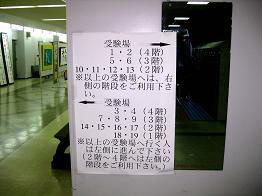 受験場 →
1・2(4階)
5・6(3階)
10・11・12・13(2階)
※以上の受験場へは、右
側の階段をご利用下さ
い。
← 受験場
3・4(4階)
7・8・9(3階)
14・15・16・17(2階)
18・19(1階)
※以上の受験場へ行く人
は左側に進んで下さい
(2階~4階へは左側の
階段をご利用下さい。)